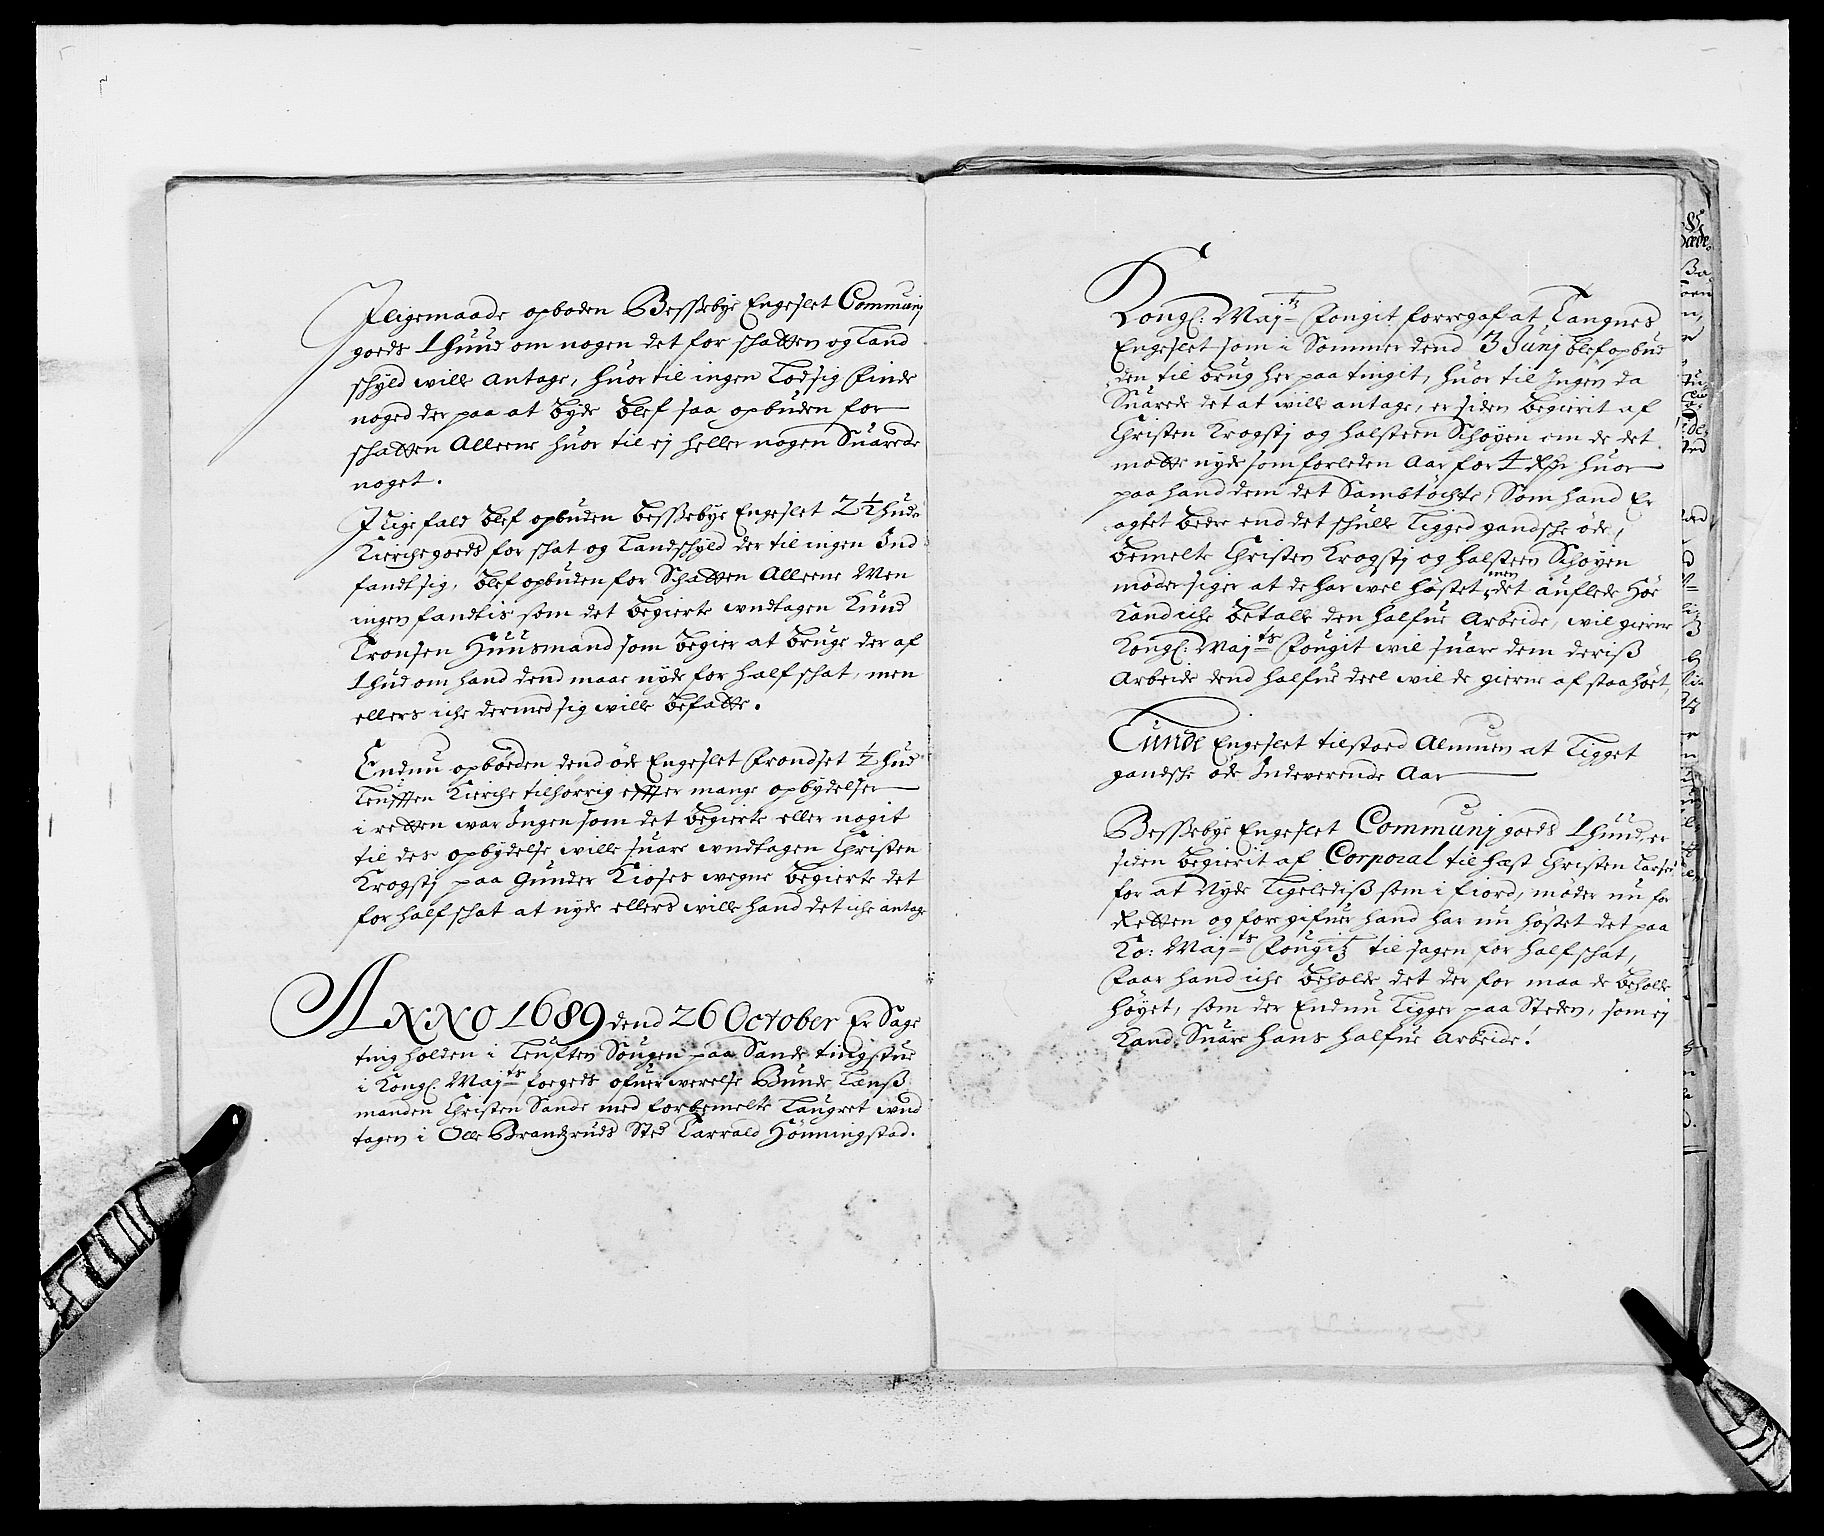 Iligemaade opboden Bessebye Engeslet Communj
goeds 1 huud om nogen det for schatten og Land
schyld wille Antage, huor til ingen Lod sig finde
noged der paa at byde blef saa opbuden for
schatten Alleene huor til ej heller nogen Suarede
noget.
I lige fald blef opbuden Bessebye Engeslet 2½ hude
Kierchegoeds for schat og Landschyld der til ingen Ind
fandt sig, blef opbuden for Schatten Alleene Men
ingen fandtis som det begierte undtagen Knud
Tronsen Huusmand som begier at bruge der af
1 hud om hand dend maae nyde for half schat, men
ellers iche dermed sig wille befatte.
Endnu opbøeden dend øde Engeslet Frondset ½ hud
Teufften Kierche tilhørrig effter mange opbydelser
i retten war Ingen som det begierte eller nogit
til des opbydelse wille suare undtagen Christen
Krogstj paa Gunder Kioses wegne begierte det
for half schat at nyde ellers wille hand det iche antage
ANNO 1689 dend 26 October Er Sage
ting holden i Teuften Sougen paa Sande tingstue
i Kongl. Majts foegeds ofuerwerelse Bunde Lenss
manden Christen Sande med forbemelte Laugret und
tagen i Olle Brandzruds Sted Tarrald Hønningstad.
Kongl: Majtz Fougit forregaf at Langnes
Engeslet som i Sommer dend 3 Junj blef opbud
den til brug her paa tingit, huor til Ingen da
Suarede det at wille antage, er siden begierit af
Christen Krogstj og halsteen Schøyen om de det
motte nyde som forleden Aar for 4 Rdr huor
paa hand dem det Sambtøchte, Som hand Er
agtet bedre end det schulle Ligged gandsche øde,
bemelte Christen Krogstj og halsteen Schøyen
møder siger at de har wel høstet men det auflede Høe
Kand iche betalle den halfue Arbeide, wil gierne
Kongl: Majts Fougit wil suare dem deriss
Arbeide dend halfue deel wil de gierne afstaa høet,
Lunde Engeslet tilstoed Almuen at Ligget
gandsche øde Indeverende Aar
Bessebye Engeslet Communj goeds 1 huud, er
siden begierit af Corporal til hæst Christen Larsen
for at Nyde Ligelediss som i fiord, møder nu for
Retten og foregifuer hand har nu høstet det paa
Ko: Majts Fougitz til sagen for half schat,
Faar hand iche beholde det der for maa de beholde
høyet, som der Endnu Ligger paa Steden, som ej
Kand Suare hans halfue Arbeide!